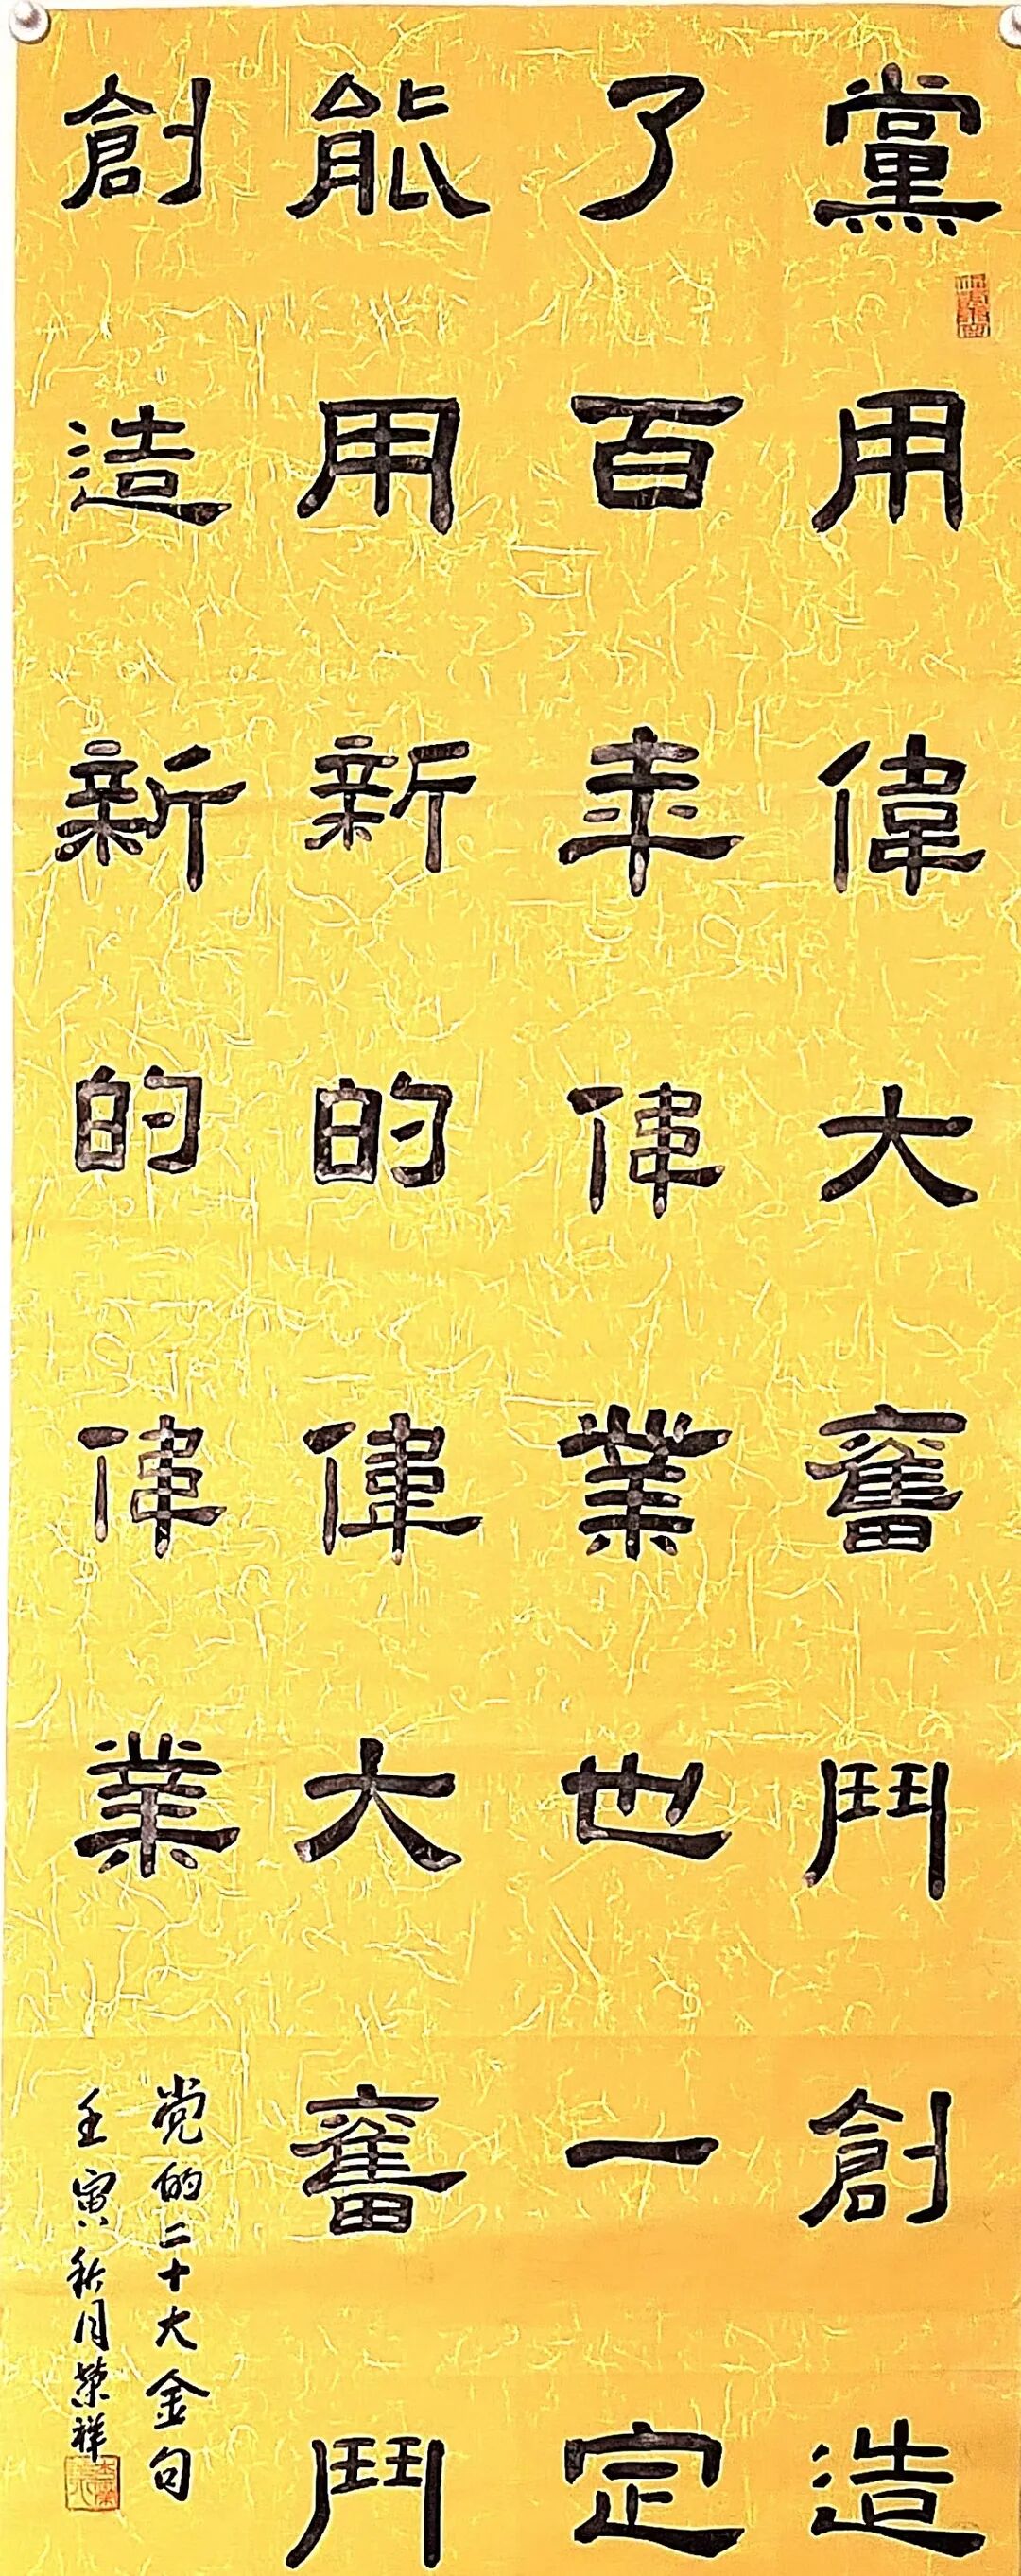 黨用偉大奮鬥創造
了百年偉業也一定
能用新的偉大奮鬥
創造新的偉業
党的二十大金句
壬寅秋月荣祥